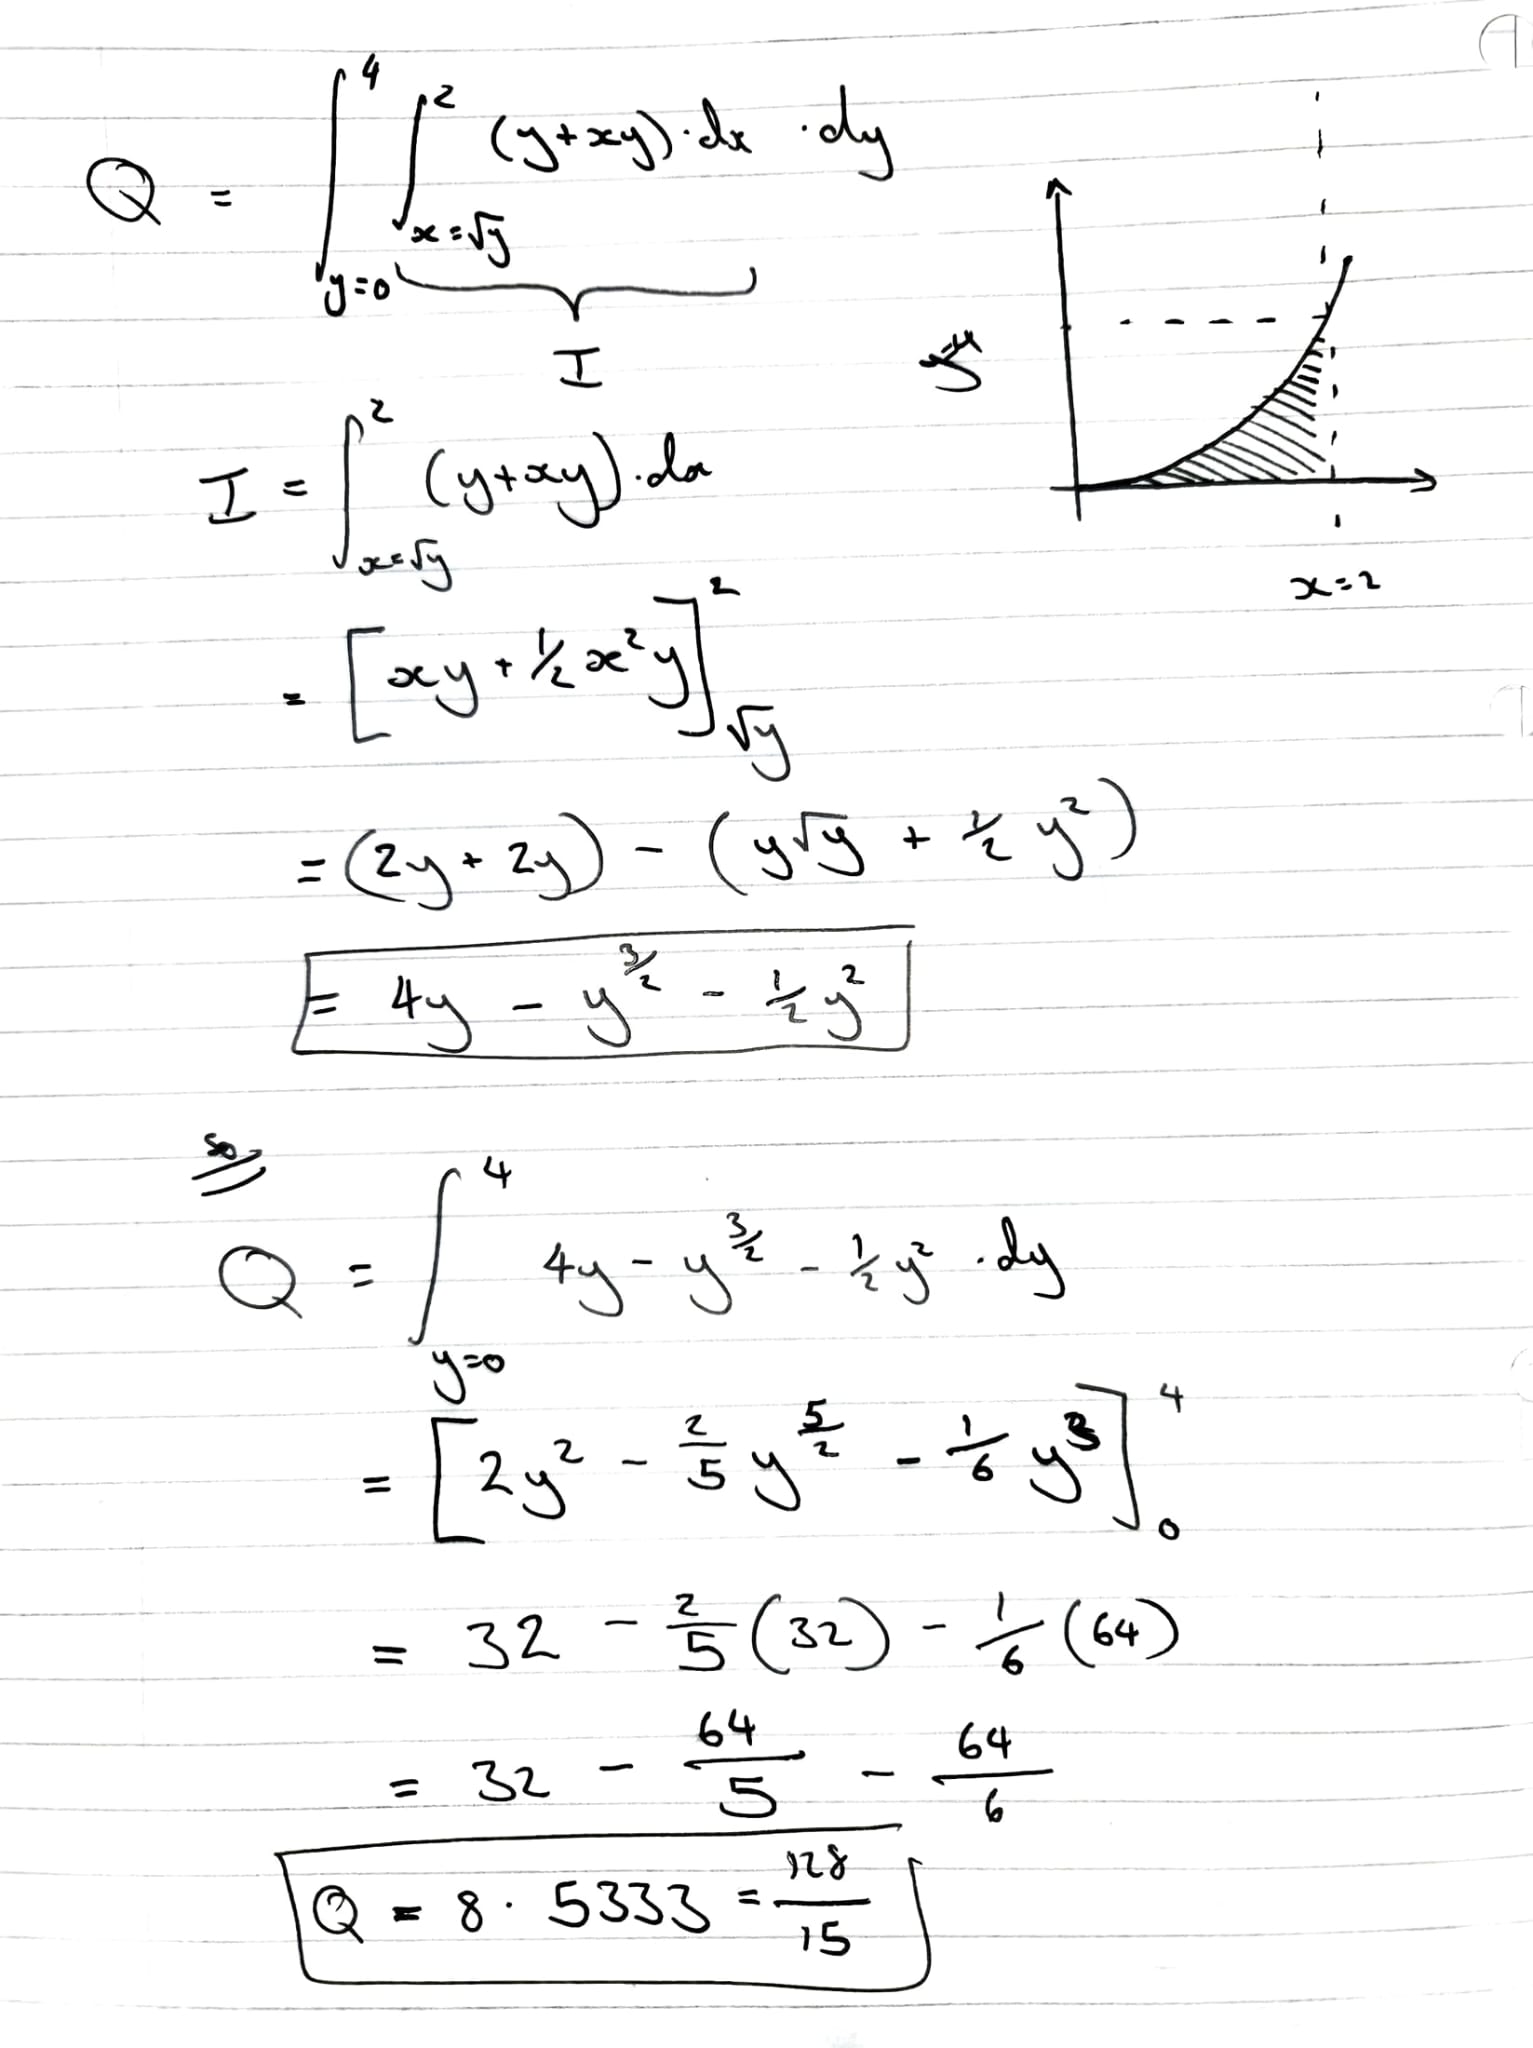 Q = ∫_{y=0}^{4} ∫_{x=√y}^{2} (y+xy)·dx ·dy
I
y=4
x=2
I = ∫_{x=√y}^{2} (y+xy)·dx
= [xy + ½x²y]_{√y}^{2}
= (2y + 2y) - (y√y + ½y²)
= 4y - y^{3/2} - ½y²
so
Q = ∫_{y=0}^{4} 4y - y^{3/2} - ½y² ·dy
= [2y² - 2/5 y^{5/2} - 1/6 y³]_{0}^{4}
= 32 - 2/5 (32) - 1/6 (64)
= 32 - 64/5 - 64/6
Q = 8·5333 = 128/15